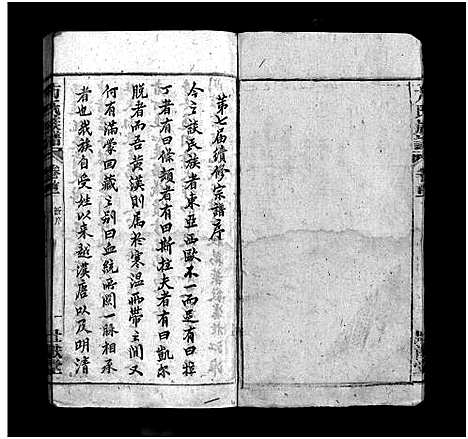 第七屆續修宗譜序
今之談民族者東亞西歐不一而足有曰雅
丁者有曰條頓者有曰斯拉夫者有曰凱尔
脱者而吾黃漢則屬於寒温兩帶之間又
何有滿蒙回藏之别曰血統所関一脉相承
者也我族自受姓以来越漢唐以及明清
族譜
卷首
新序
一